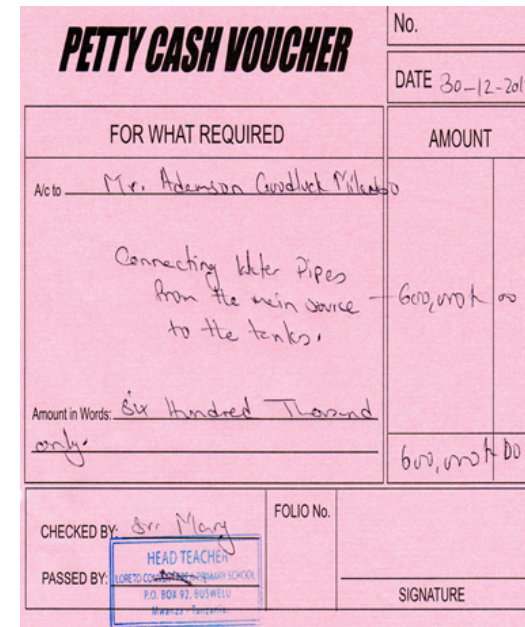 PETTY CASH VOUCHER
No.
DATE 30-12-201
FOR WHAT REQUIRED
AMOUNT
A/c to Mr. Adamson Goodluck
Connecting Water Pipes
from the main source
to the tanks.
600,000/= 00
Amount in Words: Six Hundred Thousand
only.
600,000/= 00
CHECKED BY: Sr. Mary
FOLIO No.
PASSED BY:
HEAD TEACHER
LORETO PRIMARY SCHOOL
P.O. BOX 92, BUSWELU
Mwanza - Tanzania.
SIGNATURE